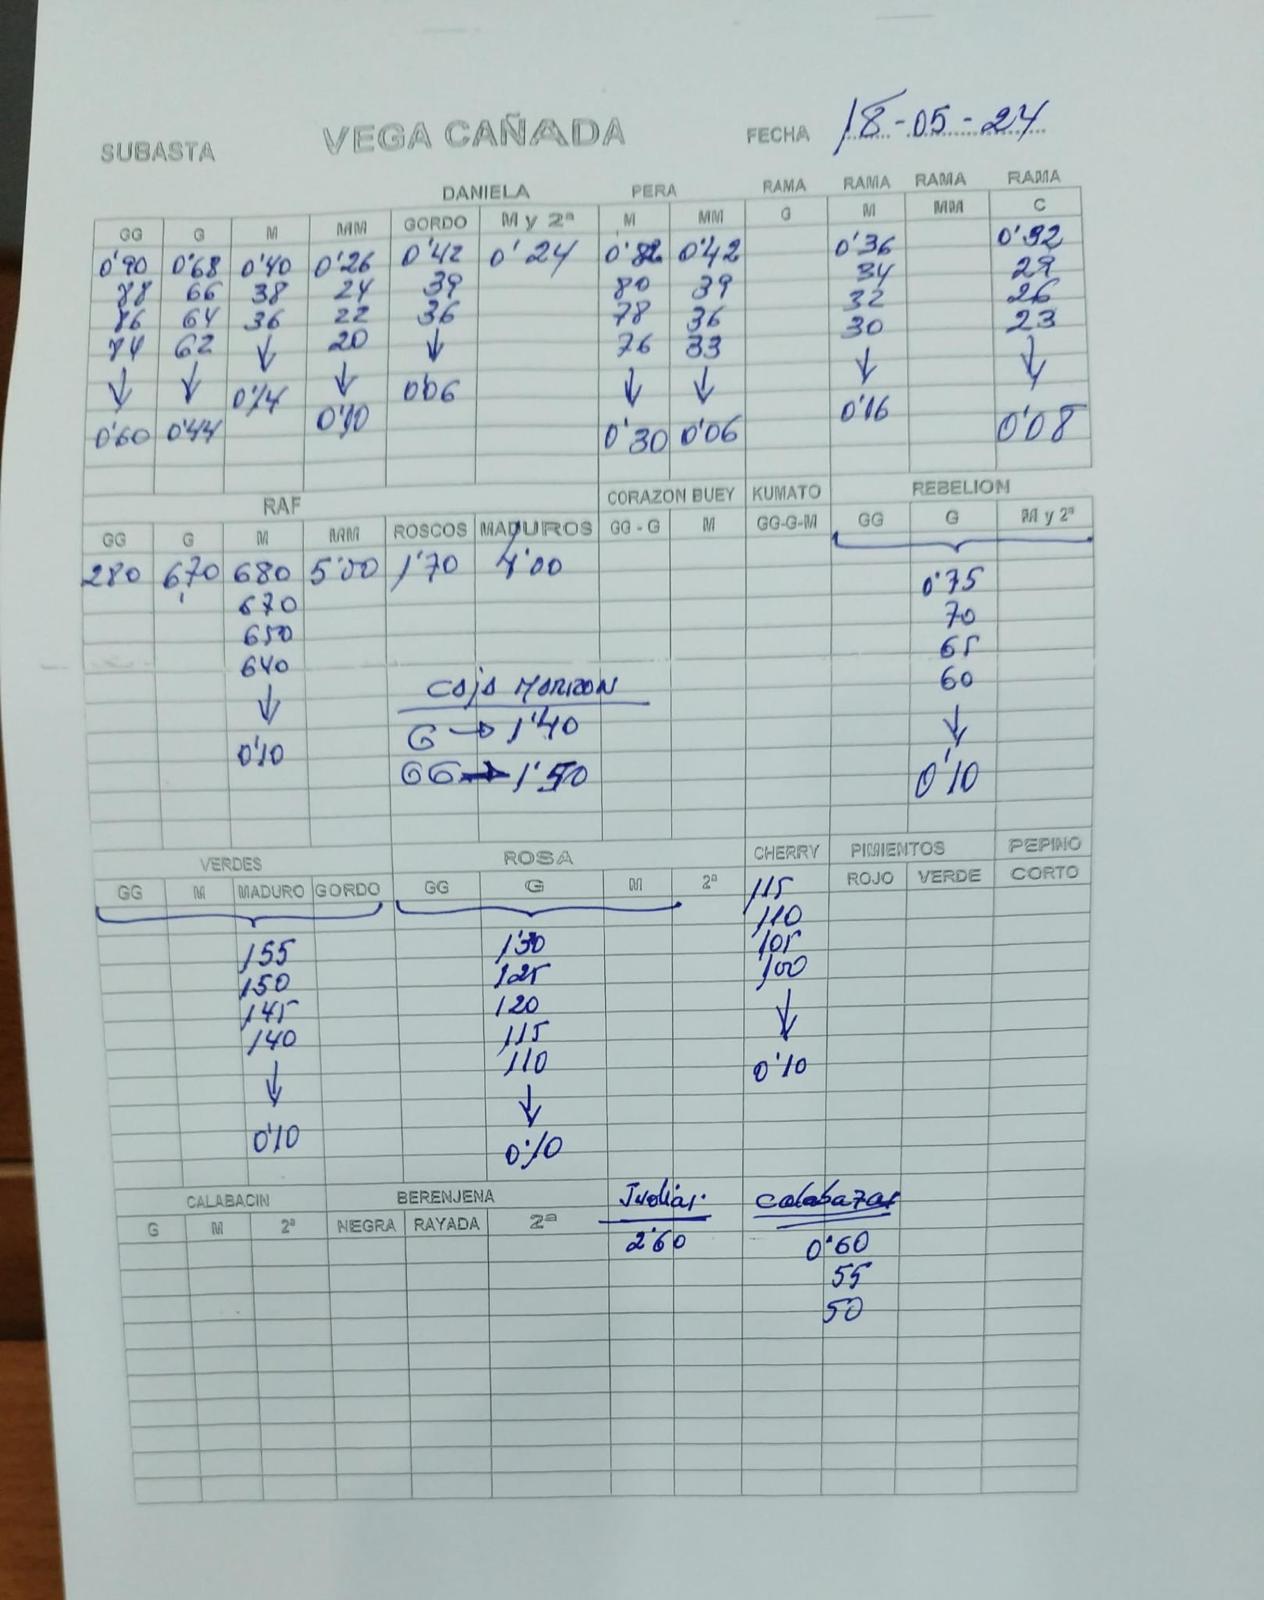 SUBASTA VEGA CAÑADA FECHA 18-05-24
DANIELA PERA RAMA RAMA RAMA RAMA
GG G M MM GORDO M y 2ª M MM G M MM C
0'90 0'68 0'40 0'26 0'42 0'24 0'82 0'42 0'36 0'32
88 66 38 24 39 80 39 34 29
86 64 36 22 36 78 36 32 26
84 62 ↓ 20 ↓ 76 33 30 23
↓ ↓ 0'14 ↓ 0'06 ↓ ↓ ↓ ↓
0'60 0'44 0'10 0'30 0'06 0'16 0'08
RAF CORAZON BUEY KUMATO REBELION
GG G M MM ROSCOS MADUROS GG - G M GG-G-M GG G M y 2ª
280 6,70 680 5'00 1'70 4'00 0'75
670 70
650 65
640 60
↓ ↓
0'10 0'10
Caja Morizon
G → 1'40
GG → 1'50
VERDES ROSA CHERRY PIMIENTOS PEPINO
GG M MADURO GORDO GG G M 2ª ROJO VERDE CORTO
115
110
155 1'30 105
150 125 100
145 120 ↓
140 115 0'10
↓ 110
0'10 ↓
0'10
CALABACIN BERENJENA Judias. Calabazas
G M 2ª NEGRA RAYADA 2ª
2'60 0'60
55
50